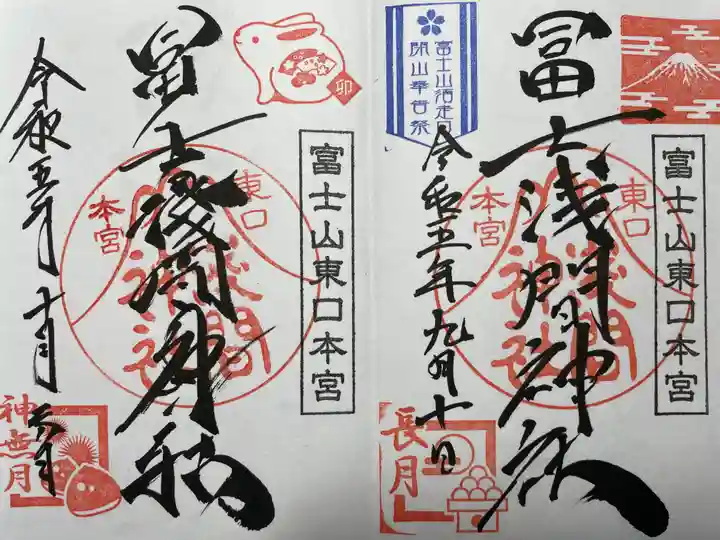 富士山東口本宮
冨士浅間神社
東口
本宮
浅間
神社
富士山須走口
開山奉告祭
令和五年九月十日
長月
富士山東口本宮
冨士浅間神社
東口
本宮
浅間
神社
卯
令和五年十月
神無月